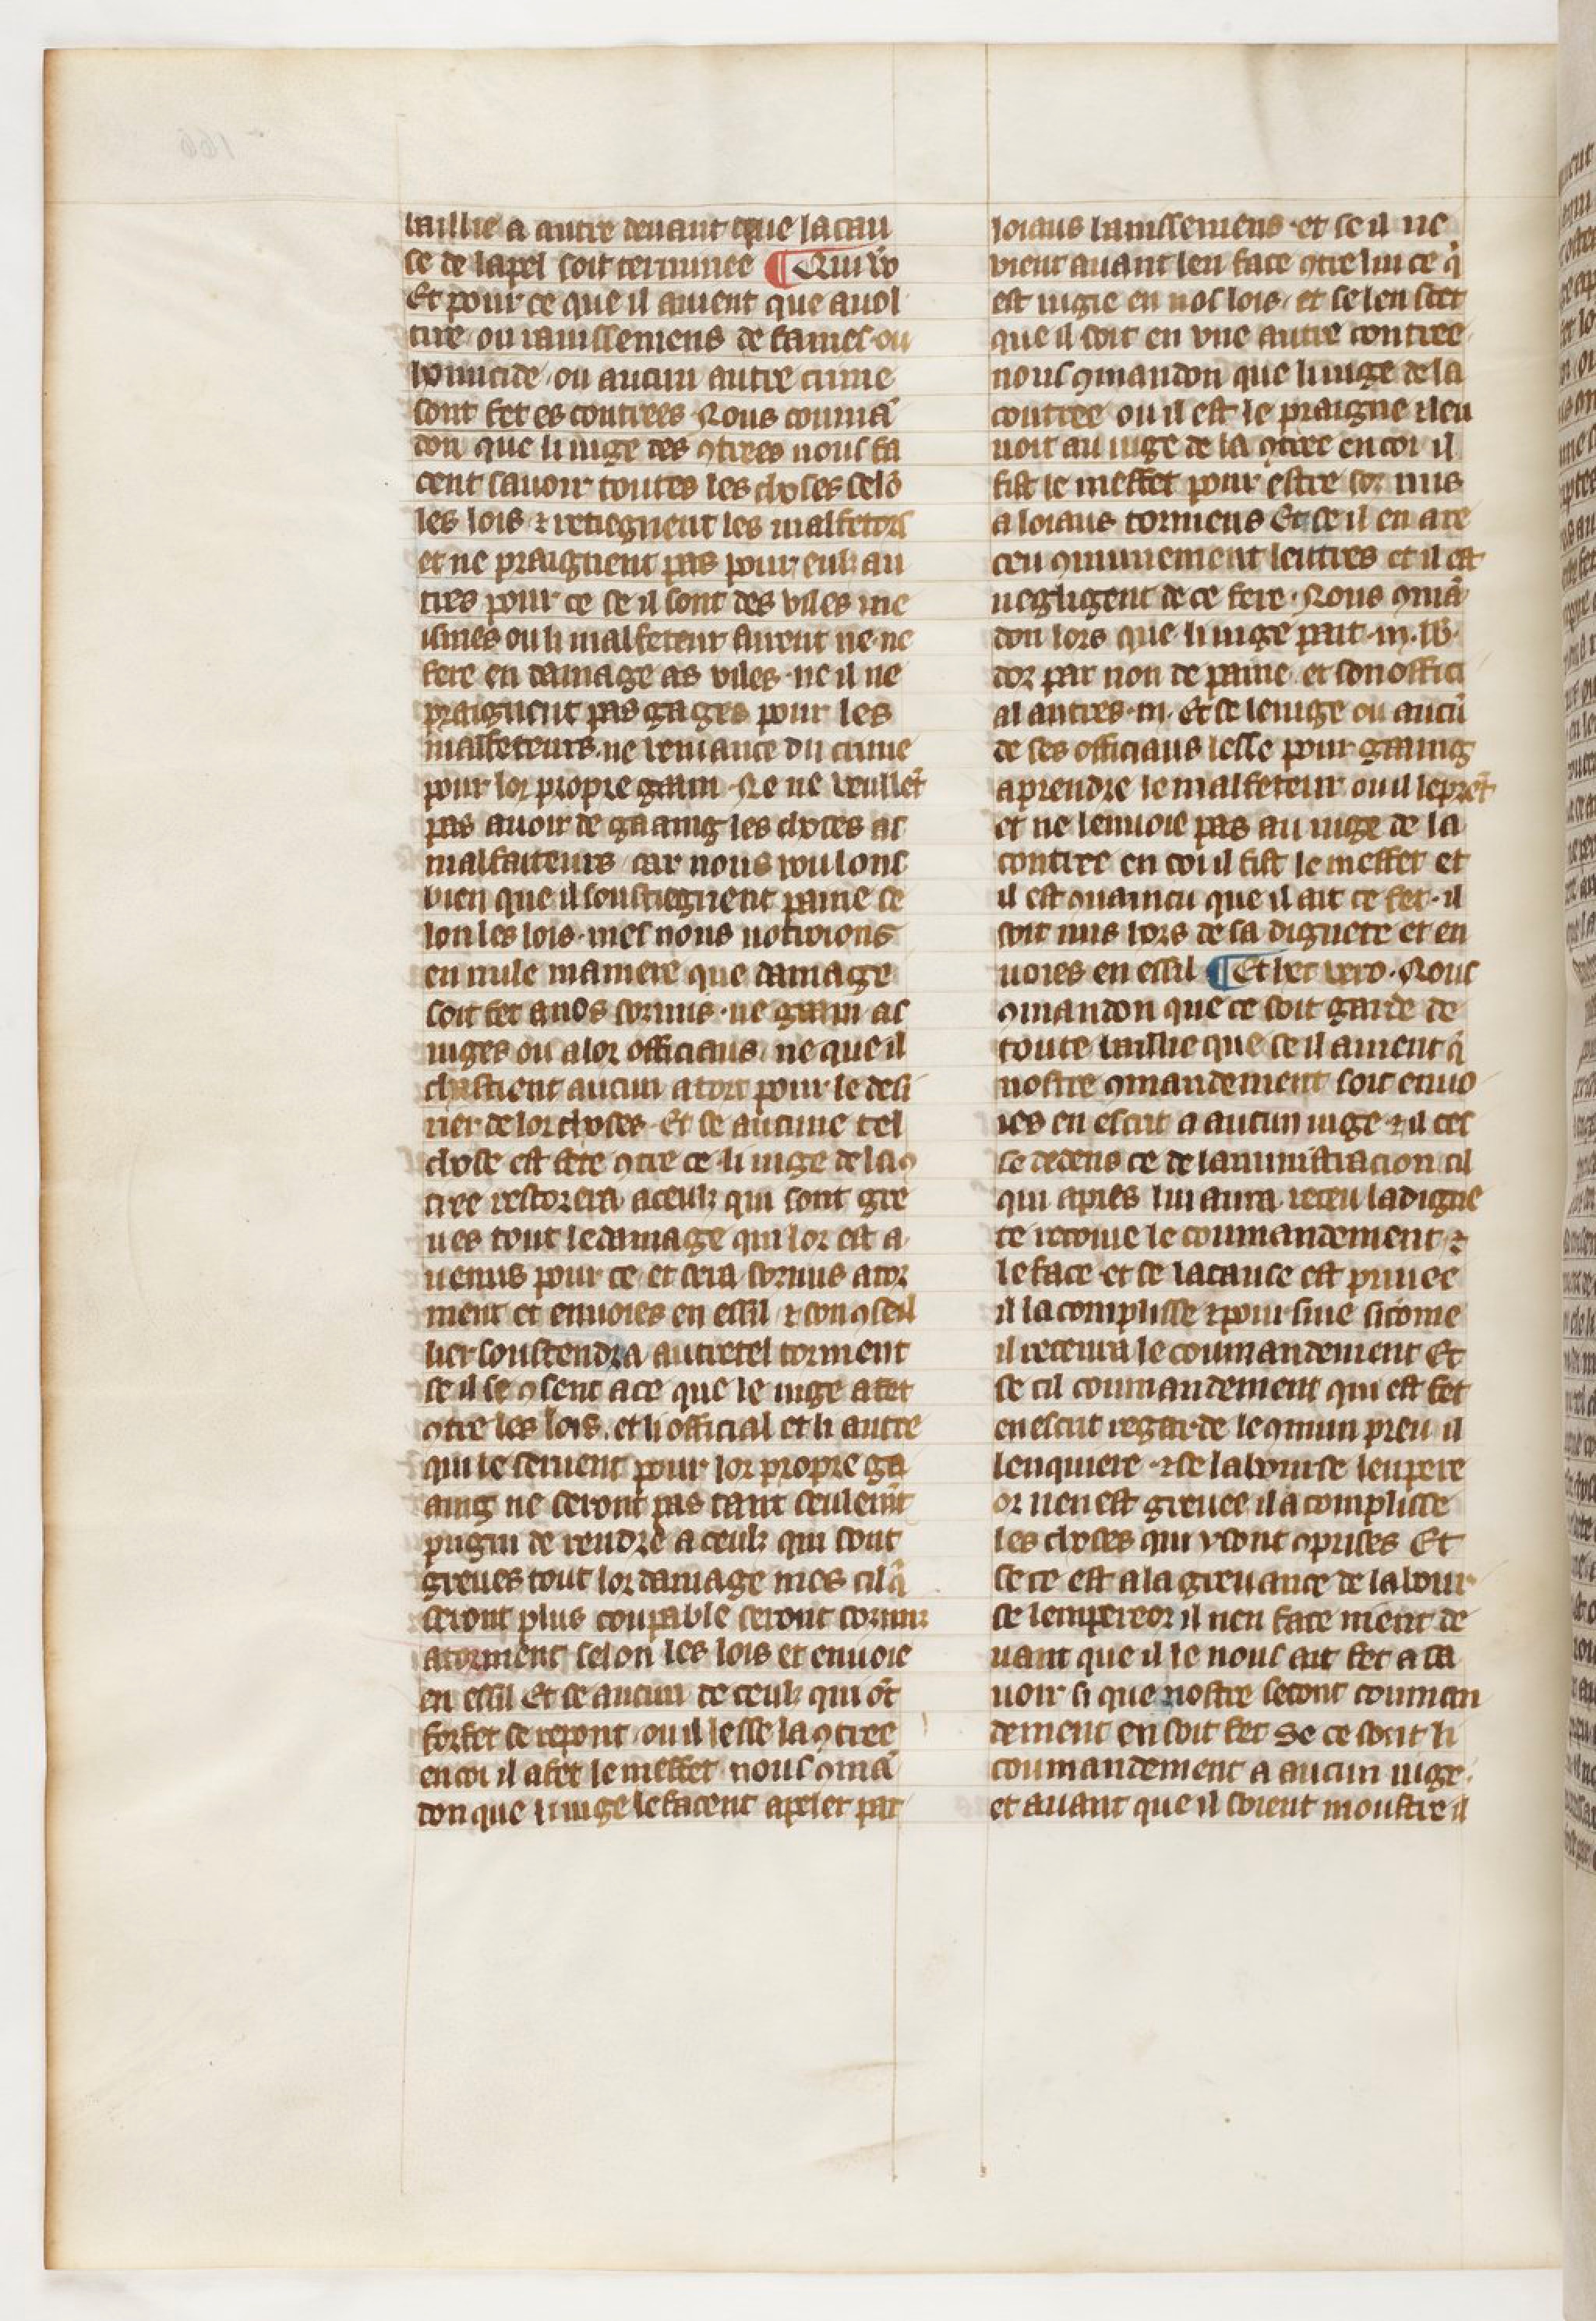 baillie a autre deuant que la cau
se de lapel soit terminee ¶ Qui ũo
Et pour ce que il auient que auol
tire ou rauissemens de fames ou
homicide ou aucun autre crime
sont fet es contrees Nous commã
don que li iuge des ꝯtrees nous fa
cent sauoir toutes les choses selõ
les lois ⁊ retiegnent les malfetors
et ne praignent pas pour eulz au
tres pour ce se il sont des viles me
ismes ou li malfeteur furent ne ne
fere en damage as viles ne il ne
praignent pas gages pour les
malfeteurs ne veniance du crime
pour lor propre gaain Ne ne veullẽt
pas auoir de gaaing les choses as
malfaiteurs car nous voulons
bien que il soustiegnent paine se
lon les lois mes nous norrions
en nule maniere que damage
soit fet a nos sormis ne gaain as
iuges ou a lor officiaus ne que il
chastient aucun a tort pour le desi
rier de lor choses Et se aucune tel
chose est fete ꝯtre ce li iuge de la ꝯ
tree restorera a ceulz qui sont gre
ues tout le damage qui lor est a
uenus pour ce et sera sormis a tor
ment et enuoies en essil ⁊ son ꝯseil
lier soustendra autretel torment
se il se ꝯsent a ce que le iuge a fet
ꝯtre les lois et li official et li autre
qui le seruent pour lor propre ga
aing ne seront pas tant seulemẽt
pugni de rendre a ceulz qui sont
greues tout lor damage mes cil q̃
seront plus coupable seront sormis
a torment selon les lois et enuoie
en essil Et se aucun de ceulz qui õt
forfet se repont ou il lesse la ꝯtree
en coi il a fet le meffet nous ꝯmã
don que li iuge le facent apeler par
loiaus banissemens et se il ne
vient auant len face ꝯtre lui ce q̃
est iugie en nos lois et se len scet
que il soit en vne autre contree
nous ꝯmandon que li iuge de la
contree ou il est le praigne ⁊ len
uoit au iuge de la ꝯtree en coi il
fist le meffet pour estre sor mis
a loiaus tormens Et se il en a re
ceu ꝯmunement lettres et il est
negligent de ce fere Nous ꝯmã
don lors que li iuge pait .iii. lb.
dor par non de paine et son offici
al autres .iii. Et se le iuge ou aucũ
de ses officiaus lesse pour gaaing
a prendre le malfeteur ou il le prẽt
et ne lenuoie pas au iuge de la
contree en coi il fist le meffet et
il est ꝯuaincu que il ait ce fet il
soit mis hors de sa dignete et en
uoies en essil ¶ Et hec vero Nous
ꝯmandon que ce soit garde de
toute baillie que se il auient q̃
nostre ꝯmandement soit enuo
ies en escrit a aucun iuge ⁊ il ces
se dedens ce de lamministracion cil
qui apres lui aura receu la digne
te recoiue le coumandement ⁊
le face et se la cause est priuee
il lacomplisse ⁊ pour siue si come
il receura le coumandement Et
se cil coumandement qui est fet
en escrit regarde le ꝯmun preu il
lenquiere ⁊ se la bourse lenpere
or nen est greuee il acomplisse
les choses qui y sont ꝯprises Et
se ce est a la greuance de la bour
se lempereor il nen face nient de
uant que il le nous ait fet a sa
uoir si que nostre secont couman
dement en soit fet Se ce sont li
coumandement a aucun iuge
et auant que il soient moustre il